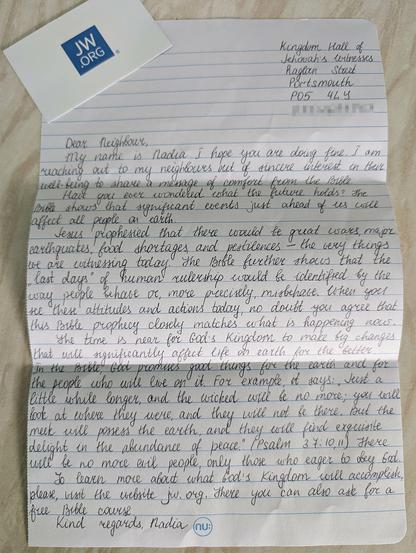 JW
.ORG
Kingdom Hall of
Jehovah's Witnesses
Raglan Street
Portsmouth
PO5 4LY
Dear Neighbour,
My name is Nadia I hope you are doing fine. I am
reaching out to my neighbours out of sincere interest in their
well-being to share a message of comfort from the Bible.
Have you ever wondered what the future holds? The
Bible shows that significant events just ahead of us will
affect all people on earth.
Jesus prophesied that there would be great wars, major
earthquakes, food shortages and pestilences – the very things
we are witnessing today. The Bible further shows that the
"last days" of human rulership would be identified by the
way people behave or, more precisely, misbehave. When you
see these attitudes and actions today, no doubt you agree that
this Bible prophecy closely matches what is happening now.
The time is near for God's Kingdom to make big changes
that will significantly affect life on earth for the better.
In the Bible, God promises good things for the earth and for
the people who will live on it. For example, it says: "Just a
little while longer, and the wicked will be no more; you will
look at where they were, and they will not be there. But the
meek will possess the earth, and they will find exquisite
delight in the abundance of peace." (Psalm 37:10,11) There
will be no more evil people, only those who eager to obey God.
To learn more about what God's Kingdom will accomplish,
please, visit the website jw.org. There you can also ask for a
free Bible course.
Kind regards, Nadia
nu: